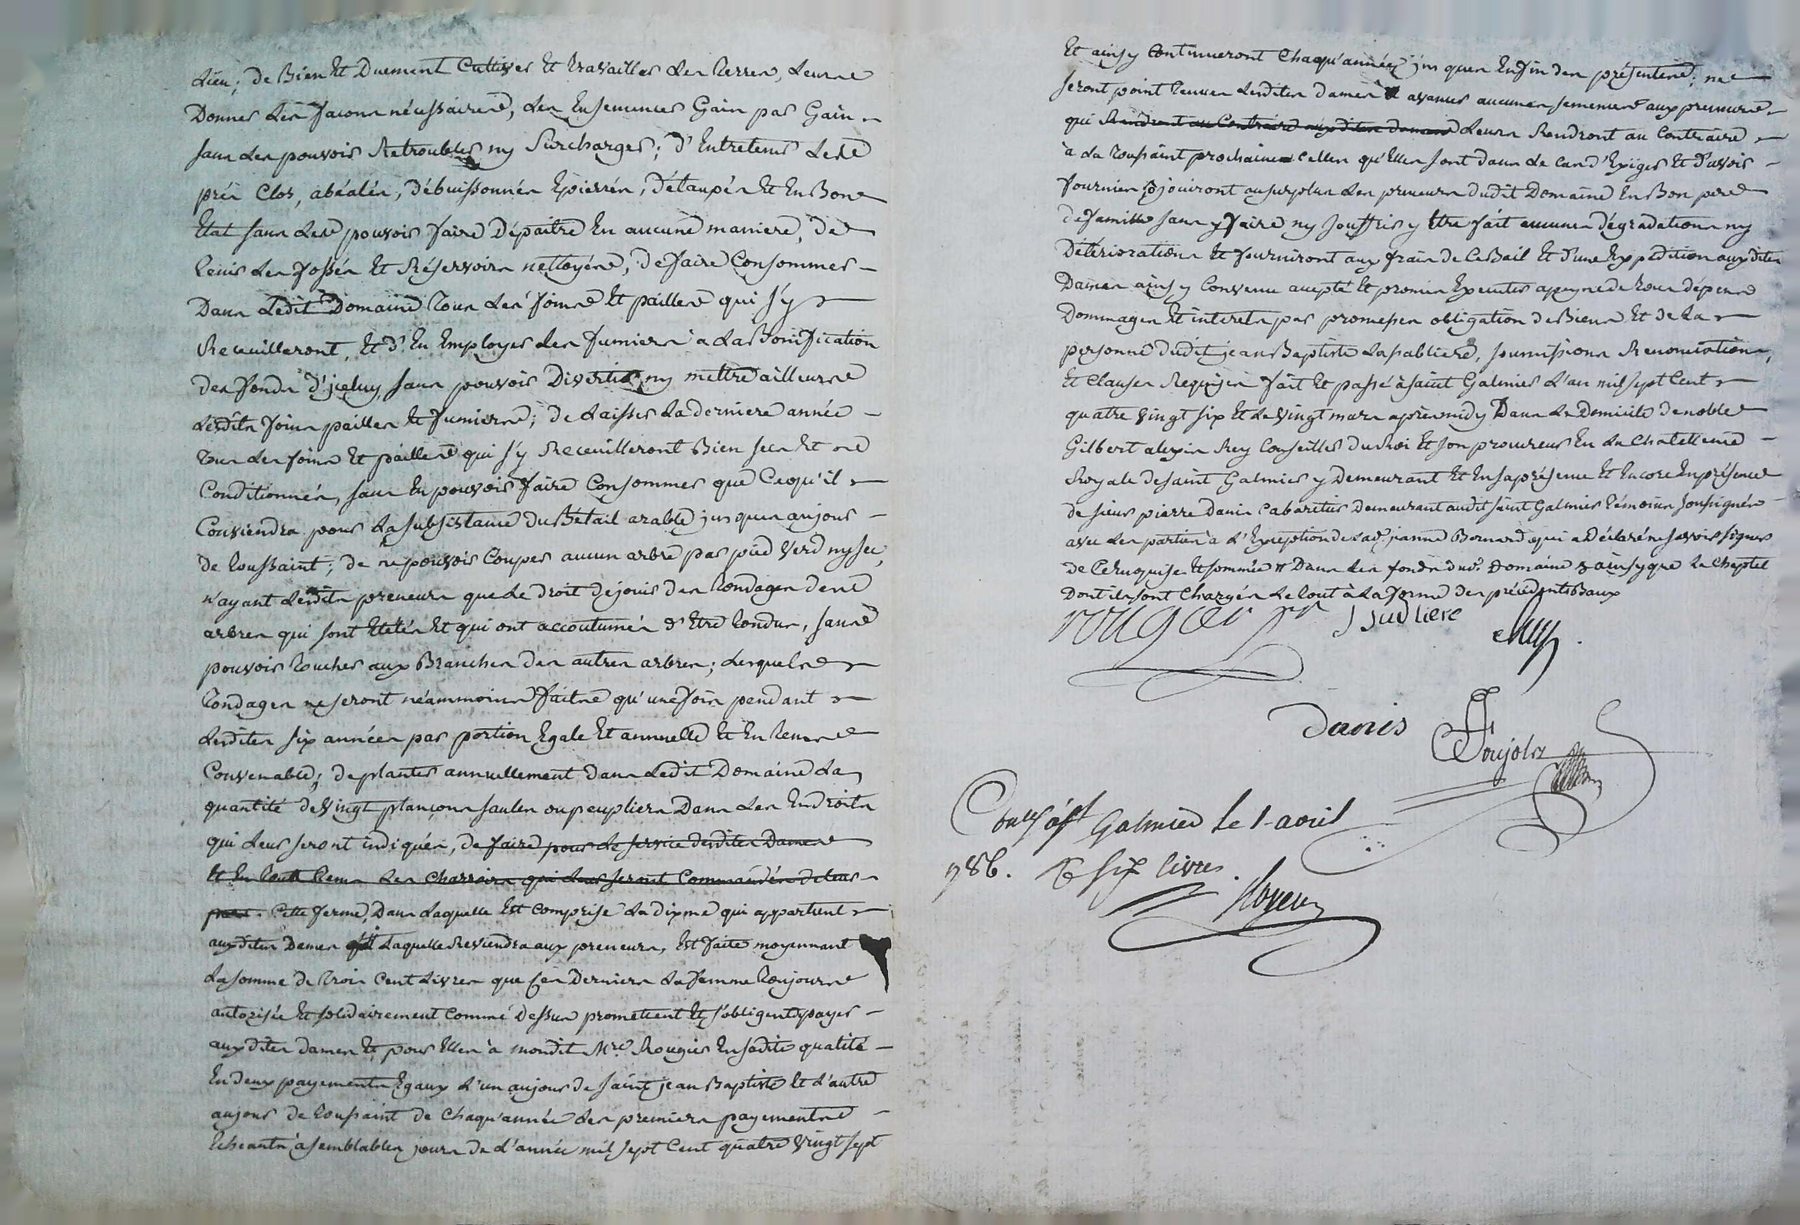 Lieu; de Bien Et Duement Cultiver Et travailler Les terres, Leurs
Donner Les façons nécessaires, Les Ensemencer Gain par Gain
sans Les pouvoir Retroubler ny Surcharger; d'Entretenir Les
préz Clos, abéalés, débuissonnés Epierrés, détaupés Et En Bon
Etat sans Les pouvoir faire Dépaitre En aucune maniere, de
tenir Les fossés Et Réservoirs nettoyés, de faire Consommer
Dans Ledit Domaine tous Les foins Et pailles qui s'y
Receuilleront, Et d'En Employer Les fumiers à La Bonification
des fonds d'iceluy, sans pouvoir Divertir ny mettre ailleurs
Lesdits foins pailles Et fumiers; de Laisser La derniere année
tous Les foins Et pailles qui s'y Receuilleront Bien secs Et
Conditionnés, sans En pouvoir faire Consommer que Ce qu'il
Conviendra pour La subsistance du Bétail arable jusques au jour
de toussaint; de ne pouvoir Couper aucun arbre par pied Verd ny sec,
n'ayant Lesdits preneurs que Le droit de jouir des tondages des
arbres qui sont Etetés Et qui ont accoutumés d'Etre tondus, sans
pouvoir toucher aux Branches des autres arbres; Lesquels
tondages ne seront néammoins faits qu'une fois pendant
Lesdites six années par portion Egale Et annuelle Et En tems
Convenable; de planter annuellement dans Ledit Domaine La
quantité de Vingt plançons saules ou peupliers Dans Les Endroits
qui Leur seront indiqués, de faire pour Le service desdites Dames
Et En tout tems Les Charrois qui Leur seront Commandés de leur
part. Cette ferme, Dans Laquelle Est Comprise La dixme qui appartient
auxdites Dames Laquelle Reviendra aux preneurs, Est faite moyennant
La somme de trois Cent Livres que Ces Derniers La femme toujours
autorisée Et solidairement Comme Dessus promettent Et s'obligent payer
auxdites dames Et pour Elles à mondit Mre. Rougier En sadite qualité
En deux payements Egaux L'un au jour de saint jean Baptiste Et L'autre
au jour de toussaint de Chaqu'année Les premiers payements
Echeants à semblables jours de L'année mil sept Cent quatre Vingt sept
Et ainsy Continueront Chaqu'année jusques En fin des présentes; ne
seront point tenues Lesdites dames avances aucunes semences aux preneurs
qui Rendront au Contraire auxdites dames Leurs Rendront au Contraire
à La toussaint prochaine Celles qu'Elles sont dans Le Cas d'Exiger Et d'avoir
fournies jouiront au surplus Les preneurs dudit Domaine En Bon pere
de famille sans y faire ny souffrir y Etre fait aucunes dégradations ny
Détériorations Et fourniront aux frais de Ce Bail Et d'une Expédition auxdites
Dames ainsy Convenu accepté Et promis Executer a peyne de tous dépens
Dommages Et interets par promesses obligation de Biens Et de La
personne dudit jean Baptiste Lasabliere, soumissions Renonciations,
Et Clauses Requises fait Et passé à saint Galmier L'an mil sept Cent
quatre Vingt six Et Le Vingt mars après midy Dans Le Domicile de noble
Gilbert alexis Rey Conseiller du Roi Et son procureur En La Chatellenie
Royale de saint Galmier y Demeurant Et En sa présence Et Encore En présence
de sieur pierre Danis Cabaretier Demeurant audit saint Galmier témoins soussignés
avec Les parties à L'Exception de jeanne Bernard qui a déclaré ne savoir signer
de Ce Enquise Et sommée Dans Les fonds dud. Domaine ainsy que Le Cheptel
Dont ils sont Chargés Le tout à La forme des précédents Baux
rougier
Danis
Poujols
Conlé à St Galmier le 1 avril
1786. R six livres.